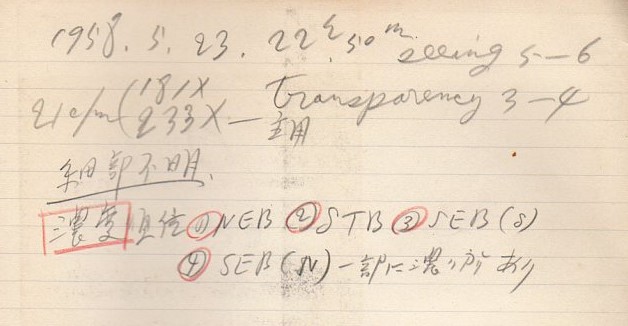 1958. 5. 23. 22h 50m. seeing 5-6
21c/m (181X transparency 3-4
233X—主用
細部不明.
濃度順位 ① NEB ② STB ③ SEB(S)
④ SEB(N) 一部に濃い所あり